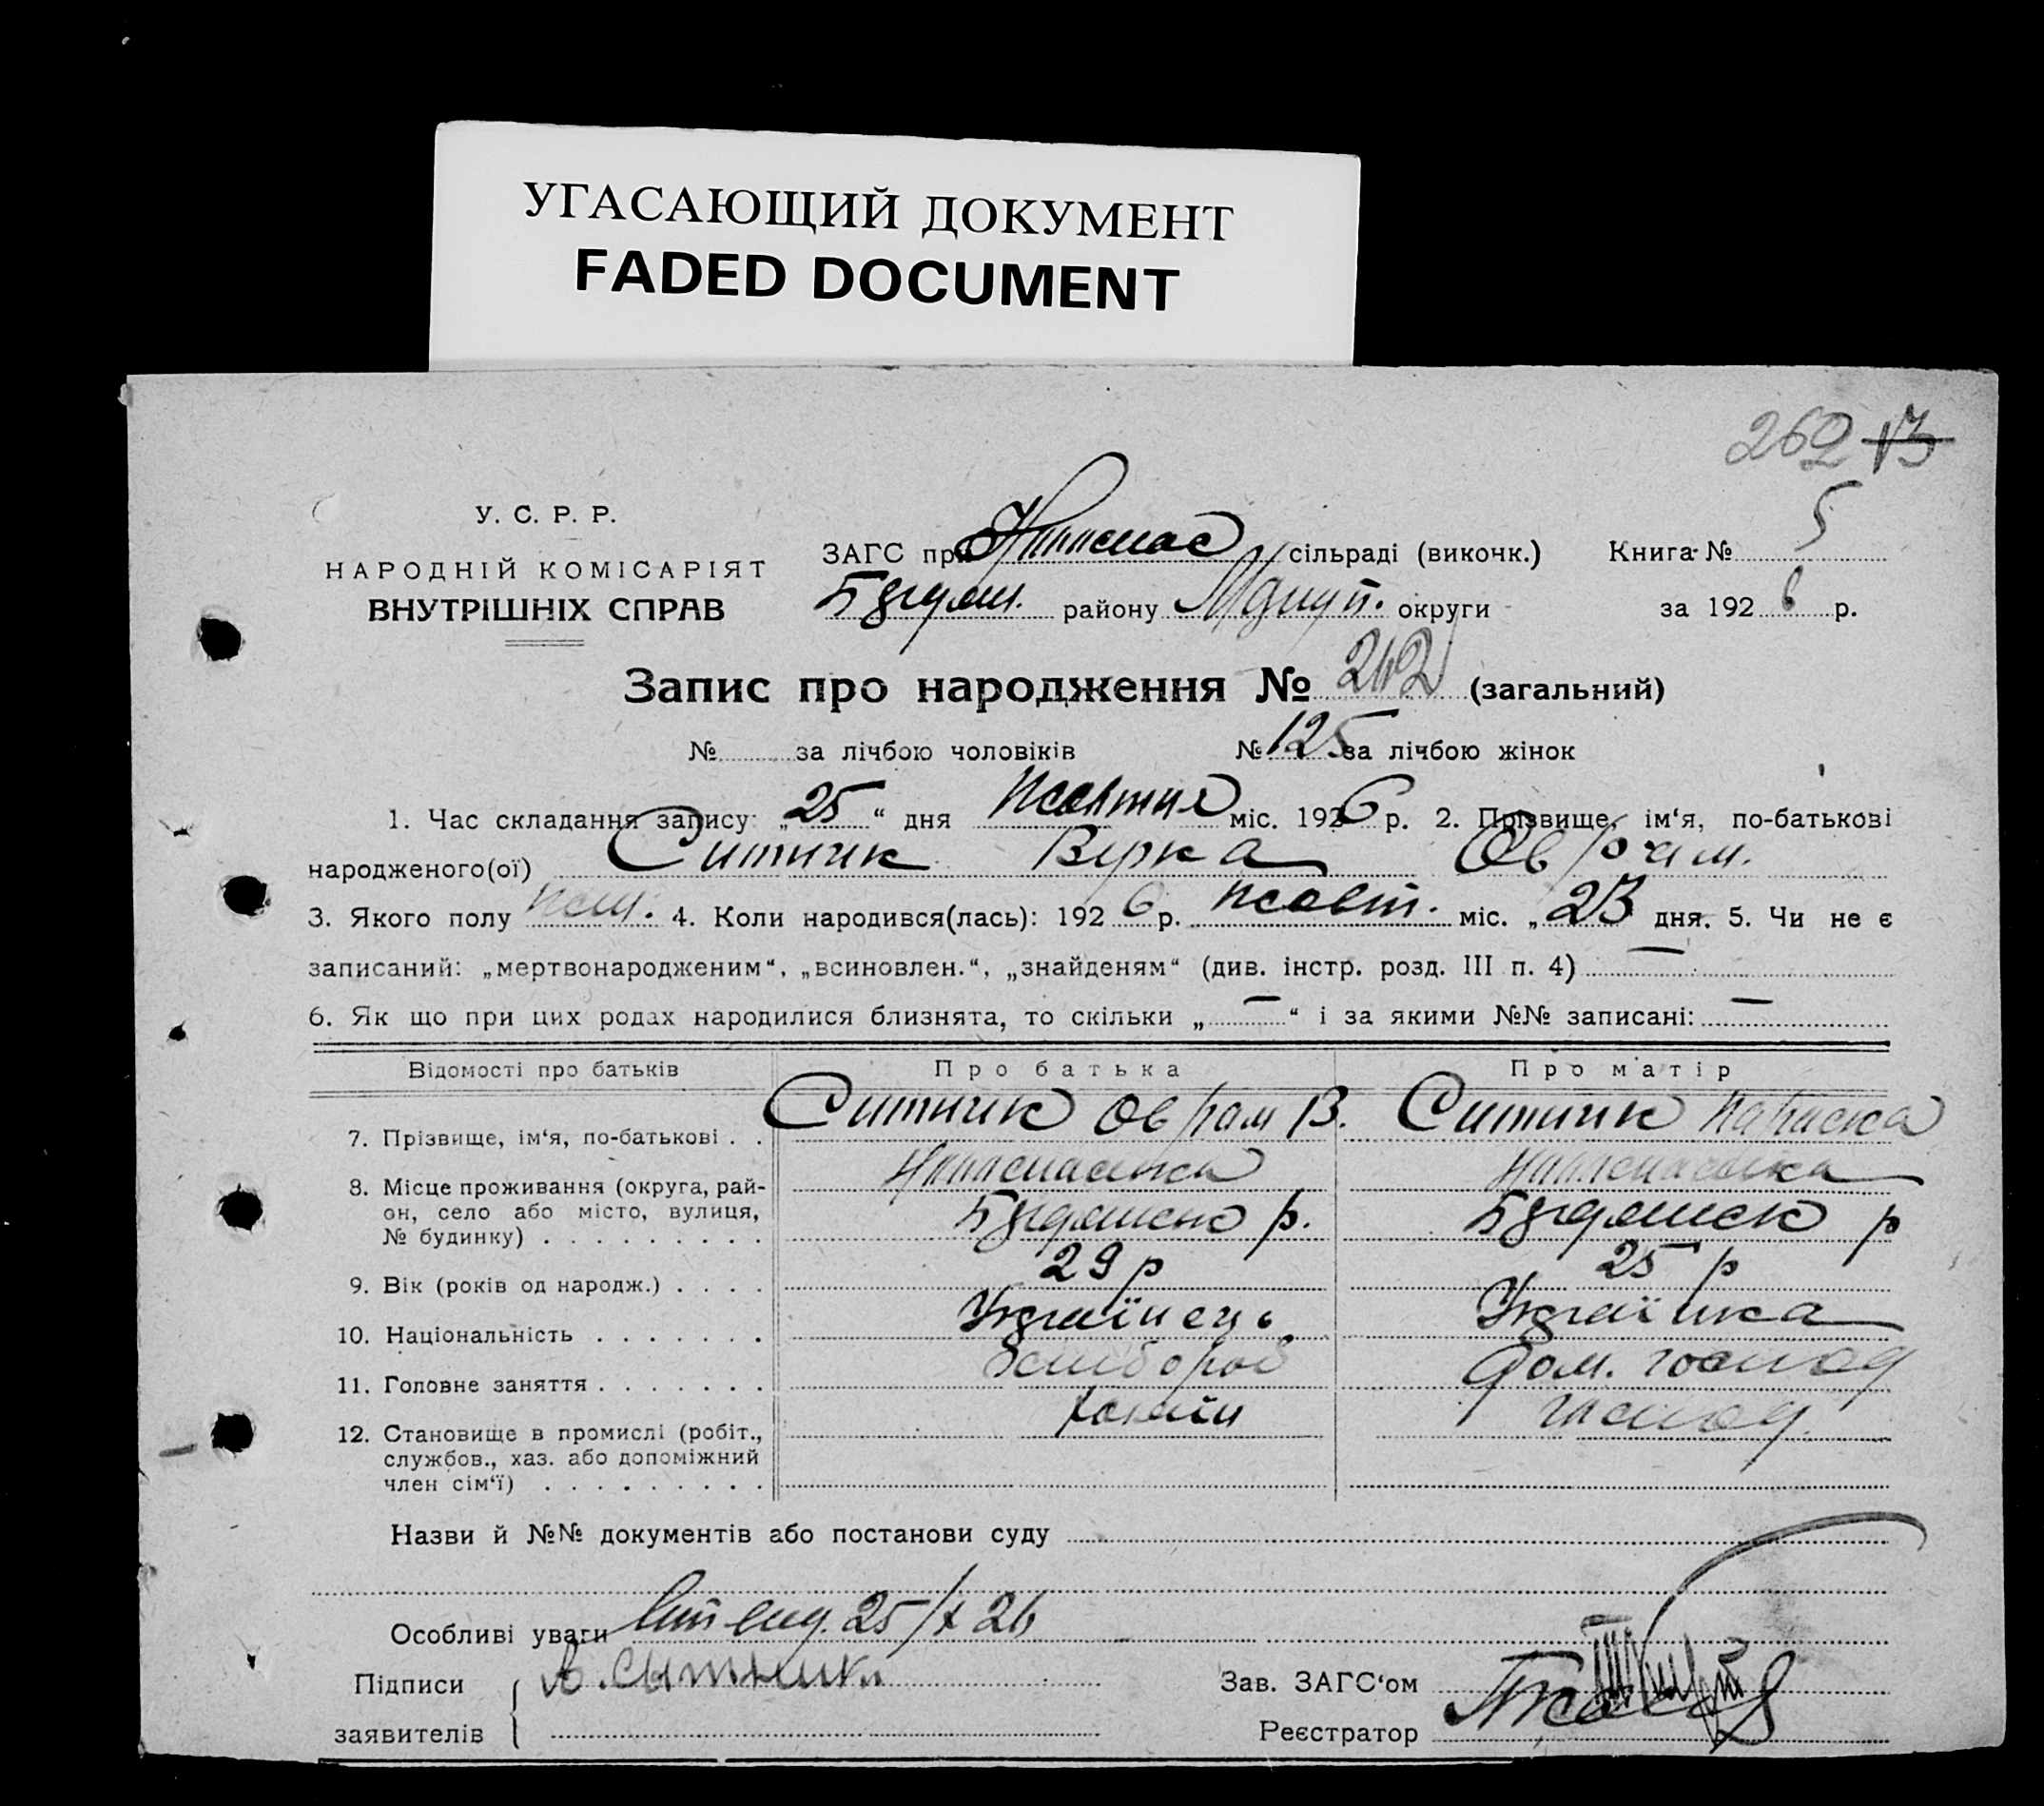 УГАСАЮЩИЙ ДОКУМЕНТ
FADED DOCUMENT
262 13
У. С. Р. Р.
НАРОДНІЙ КОМІСАРІЯТ
ВНУТРІШНІХ СПРАВ
ЗАГС при сільраді (виконк.) Книга № 5
району округи за 1926 р.
Запис про народження № 262 (загальний)
№ за лічбою чоловіків № 125 за лічбою жінок
1. Час складання запису: „25“ дня Жовтня міс. 1926 р. 2. Прізвище, ім‘я, по-батькові
народженого(ої) Ситник Вірка Оврам.
3. Якого полу жін. 4. Коли народився(лась): 1926 р. жовт. міс. „23 дня. 5. Чи не є
записаний: „мертвонародженим“, „всиновлен.“, „знайденям“ (див. інстр. розд. III п. 4) —
6. Як що при цих родах народилися близнята, то скільки „—“ і за якими №№ записані: —
Відомості про батьків Про батька Про матір
7. Прізвище, ім‘я, по-батькові . . Ситник Оврам В. Ситник Параска
8. Місце проживання (округа, рай-
он, село або місто, вулиця, р. р
№ будинку) . . . . . . . . .
9. Вік (років од народж.) . . . . 29 р 25 р
10. Національність . . . . . . . Українець Українка
11. Головне заняття . . . . . . . хлібороб дом. господ
12. Становище в промислі (робіт., хазяїн господ.
службов., хаз. або допоміжний
член сім‘ї) . . . . . . . . .
Назви й №№ документів або постанови суду
Особливі уваги 25/X 26
Підписи А. Сытник
заявителів
Зав. ЗАГС‘ом
Реєстратор